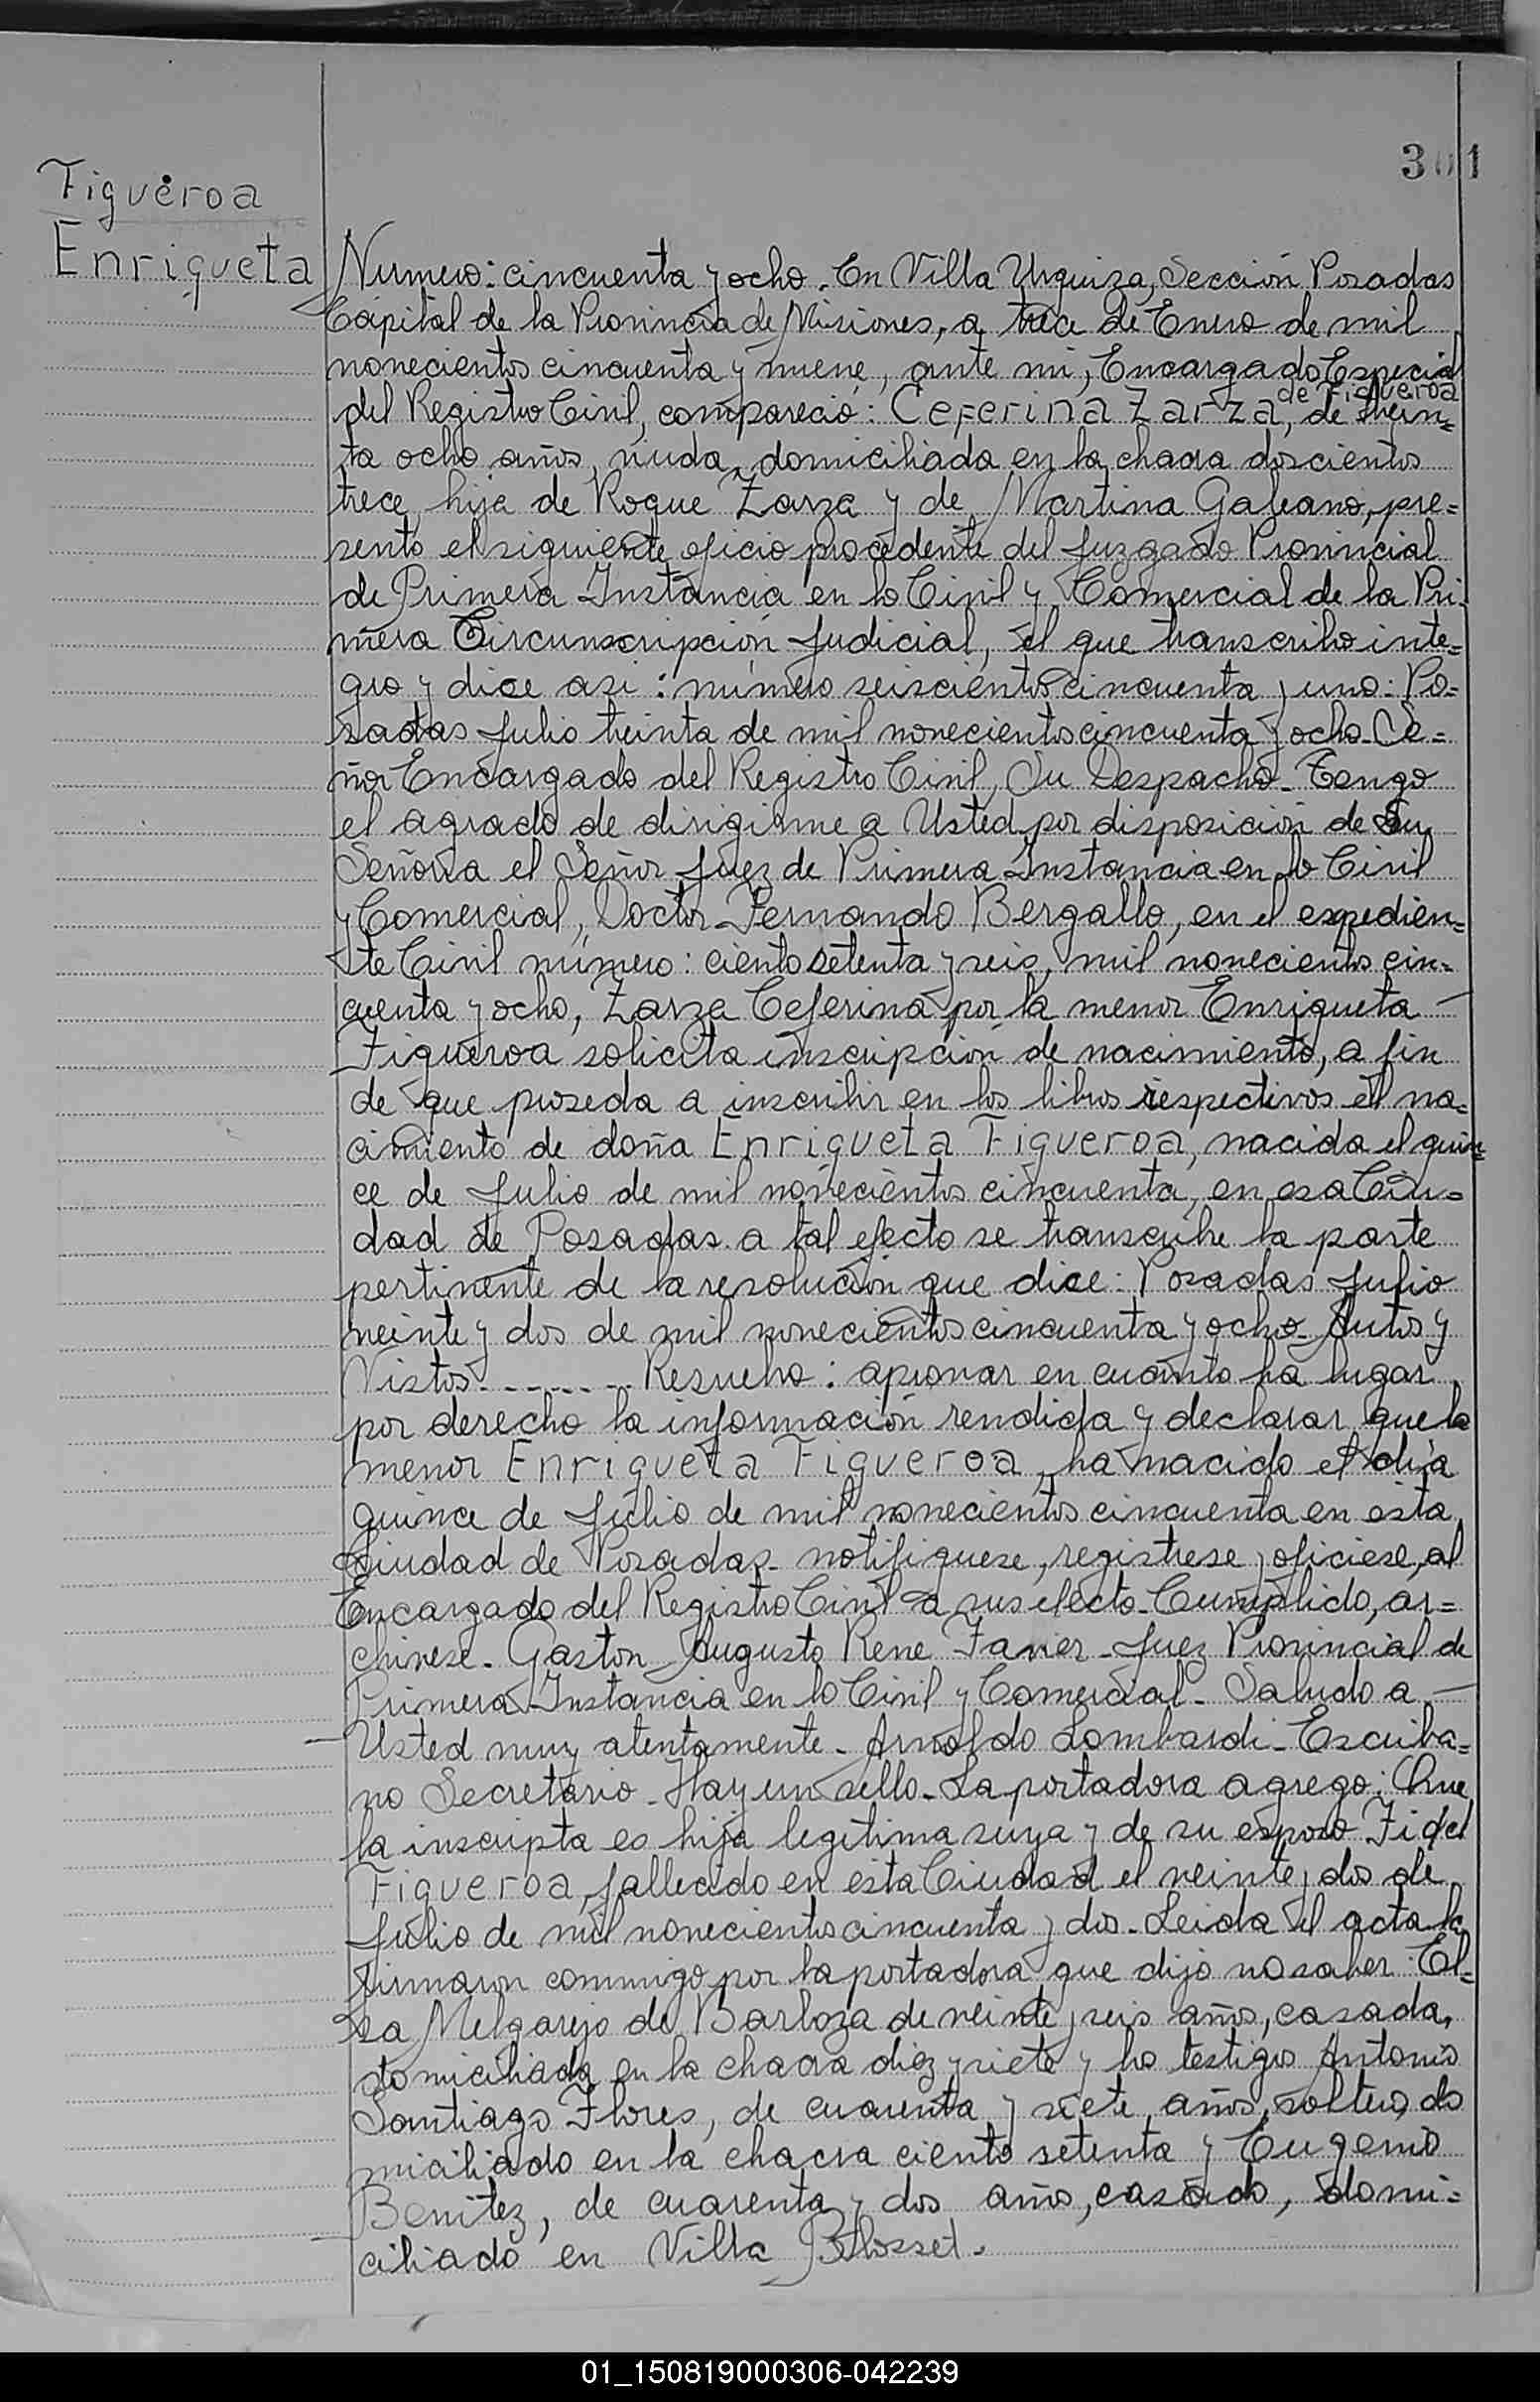 301
Figueroa
Enriqueta
Numero: cincuenta y ocho. En Villa Urquiza, Sección Posadas
Capital de la Provincia de Misiones, a trece de Enero de mil
novecientos cincuenta y nueve, ante mi, Encargado Especial
del Registro Civil, compareció: Ceferina Zarza de Figueroa, de trein=
ta ocho años, viuda, domiciliada en la chacra doscientos
trece, hija de Roque Zarza y de Martina Galeano, pre=
sento el siguiente oficio procedente del Juzgado Provincial
de Primera Instancia en lo Civil y Comercial de la Pri=
mera Circunscripción Judicial, el que transcribo inte=
gro y dice asi: número seiscientos cincuenta y uno: Po=
sadas Julio treinta de mil novecientos cincuenta y ocho. Se=
ñor Encargado del Registro Civil, Su Despacho. Tengo
el agrado de dirigirme a Usted, por disposición de Su
Señoria el Señor Juez de Primera Instancia en lo Civil
y Comercial, Doctor Fernando Bergallo, en el expedien=
te Civil número: ciento setenta y seis, mil novecientos cin=
cuenta y ocho, Zarza Ceferina por la menor Enriqueta
Figueroa solicita inscripción de nacimiento, a fin
de que proseda a inscribir en los libros respectivos el na=
cimiento de doña Enriqueta Figueroa, nacida el quin=
ce de Julio de mil novecientos cincuenta, en esa Ciu=
dad de Posadas. a tal efecto se transcribe la parte
pertinente de la resolución que dice: Posadas Julio
veinte y dos de mil novecientos cincuenta y ocho. Autos y
Vistos........ Resuelvo: aprovar en cuanto ha lugar
por derecho la información rendida y declarar que la
menor Enriqueta Figueroa, ha nacido el dia
quince de Julio de mil novecientos cincuenta en esta
Ciudad de Posadas. notifiquese, registrese y oficiese, al
Encargado del Registro Civil a sus efecto. Cumplido, ar=
chivese. Gaston Augusto Rene Favier. Juez Provincial de
Primera Instancia en lo Civil y Comercial. Saludo a
Usted muy atentamente. Arnoldo Lombardi. Escriba=
no Secretario. Hay un sello. La portadora agrego: Que
la inscripta es hija legitima suya y de su esposo Fidel
Figueroa, fallecido en esta Ciudad el veinte y dos de
Julio de mil novecientos cincuenta y dos. Leida el acta la
firmaron conmigo por la portadora que dijo no saber El=
sa Melgarejo de Barboza de veinte y seis años, casada,
domiciliada en la chacra diez y siete y los testigos Antonio
Santiago Flores, de cuarenta y siete años, soltero, do
miciliado en la chacra ciento setenta y Eugenio
Benitez, de cuarenta y dos años, casado, domi=
ciliado en Villa Blosset.
01_150819000306-042239